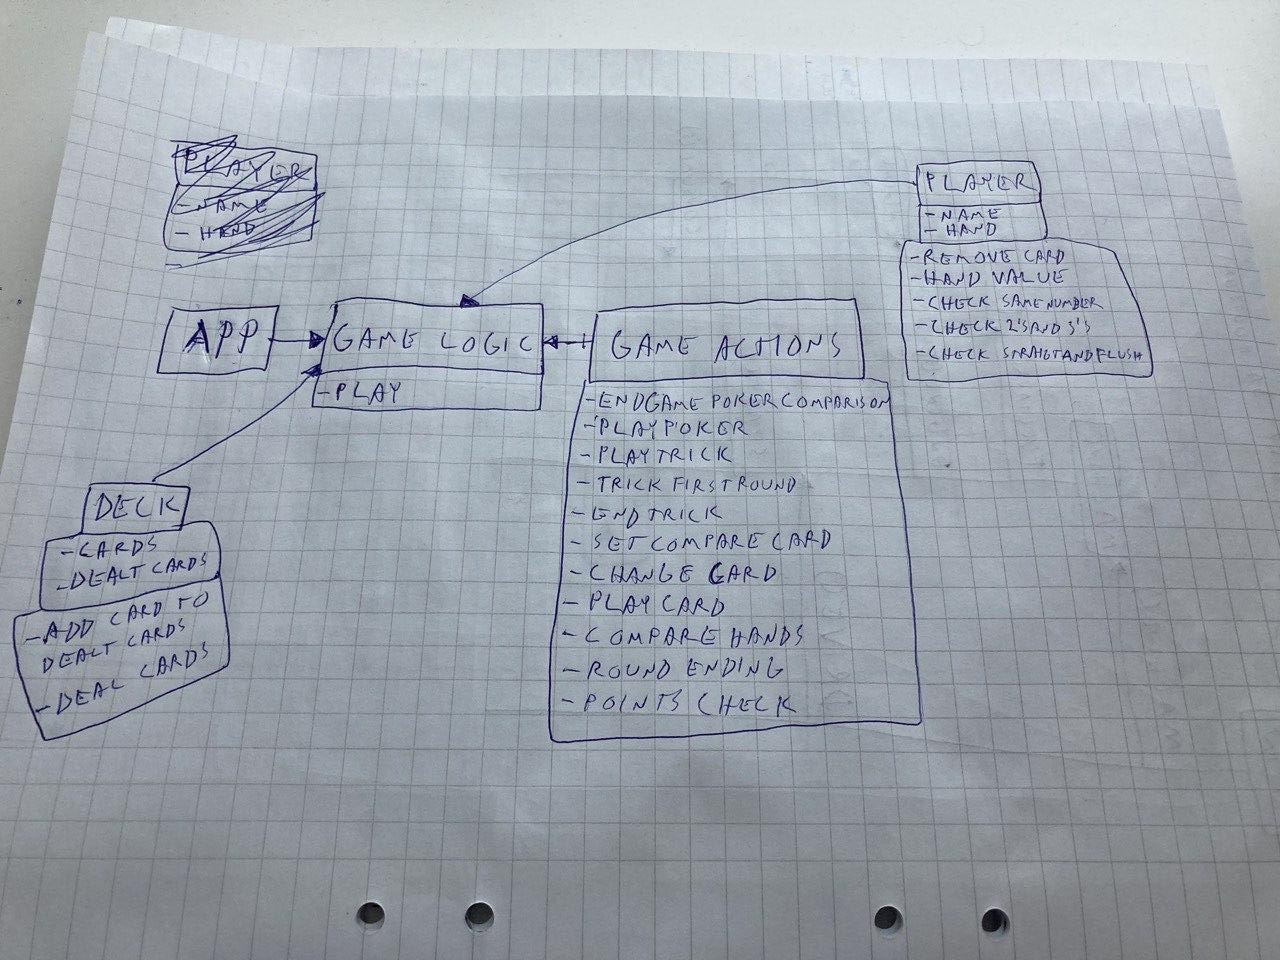 PLAYER
- NAME
- HAND
PLAYER
- NAME
- HAND
- REMOVE CARD
- HAND VALUE
- CHECK SAMENUMBER
- CHECK 2'S AND 3'S
- CHECK STRAIGTANDFLUSH
APP
GAME LOGIC
- PLAY
GAME ACTIONS
- ENDGAME POKER COMPARISON
- PLAY POKER
- PLAY TRICK
- TRICK FIRST ROUND
- END TRICK
- SET COMPARE CARD
- CHANGE CARD
- PLAY CARD
- COMPARE HANDS
- ROUND ENDING
- POINTS CHECK
DECK
- CARDS
- DEALT CARDS
- ADD CARD TO
DEALT CARDS
- DEAL CARDS